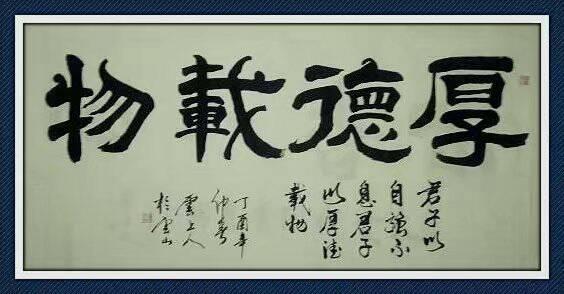 厚德載物
君子以
自强不
息君子
以厚德
載物
丁酉年
仲春
雲上人
於山